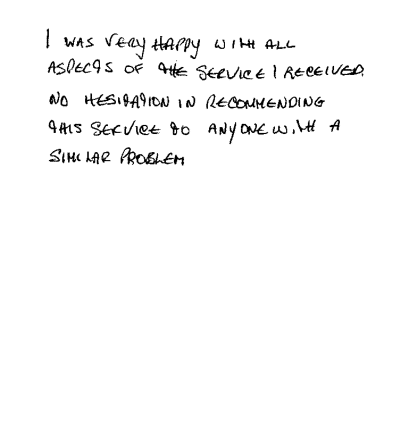 I WAS VERY HAPPY WITH ALL
ASPECTS OF THE SERVICE I RECEIVED.
NO HESITATION IN RECOMMENDING
THIS SERVICE TO ANYONE WITH A
SIMILAR PROBLEM